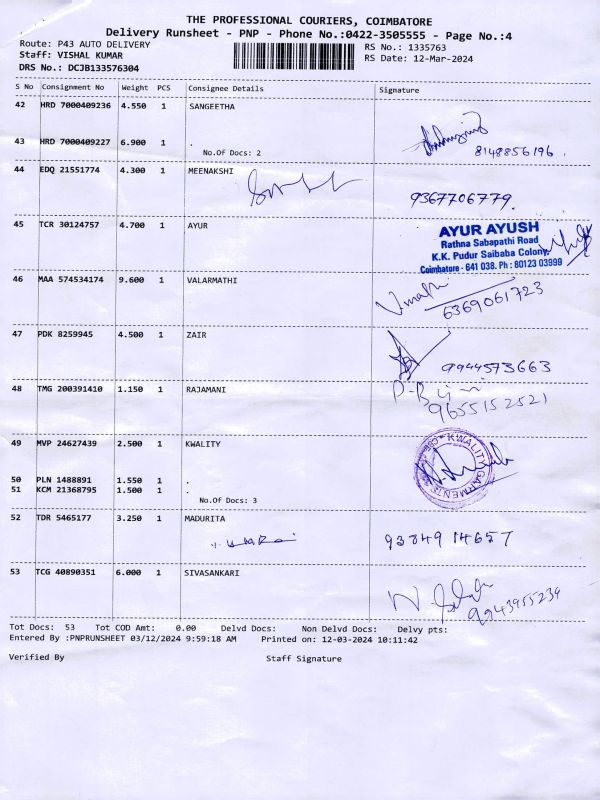 THE PROFESSIONAL COURIERS, COIMBATORE
Delivery Runsheet - PNP - Phone No.:0422-3505555 - Page No.:4
Route: P43 AUTO DELIVERY
RS No.: 1335763
Staff: VISHAL KUMAR
RS Date: 12-Mar-2024
DRS No.: DCJB133576304
S No Consignment No Weight PCS Consignee Details Signature
42 HRD 7000409236 4.550 1 SANGEETHA
43 HRD 7000409227 6.900 1 .
8148856196.
No.Of Docs: 2
44 EDQ 21551774 4.300 1 MEENAKSHI
9367706779.
45 TCR 30124757 4.700 1 AYUR
AYUR AYUSH
Rathna Sabapathi Road
K.K. Pudur Saibaba Colony
Coimbatore - 641 038. Ph : 80123 03999
46 MAA 574534174 9.600 1 VALARMATHI
6369061723
47 PDK 8259945 4.500 1 ZAIR
9944573663
48 TMG 200391410 1.150 1 RAJAMANI
9655152521
49 MVP 24627439 2.500 1 KWALITY
KWALITY GARMENTS
50 PLN 1488891 1.550 1 .
51 KCM 21368795 1.500 1 .
No.Of Docs: 3
52 TDR 5465177 3.250 1 MADURITA
9384914657
53 TCG 40890351 6.000 1 SIVASANKARI
9943955239
Tot Docs: 53 Tot COD Amt: 0.00 Delvd Docs: Non Delvd Docs: Delvy pts:
Entered By :PNPRUNSHEET 03/12/2024 9:59:18 AM Printed on: 12-03-2024 10:11:42
Verified By Staff Signature